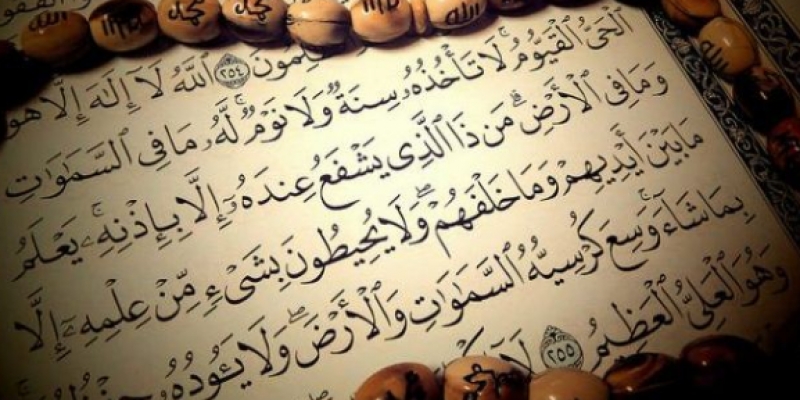 ٱللَّهُ لَآ إِلَٰهَ إِلَّا هُوَ ٢٥٤
ٱلْحَىُّ ٱلْقَيُّومُ ۚ لَا تَأْخُذُهُۥ سِنَةٌ وَلَا نَوْمٌ ۚ لَّهُۥ مَا فِى ٱلسَّمَٰوَٰتِ
وَمَا فِى ٱلْأَرْضِ ۗ مَن ذَا ٱلَّذِى يَشْفَعُ عِندَهُۥٓ إِلَّا بِإِذْنِهِۦ ۚ يَعْلَمُ
مَا بَيْنَ أَيْدِيهِمْ وَمَا خَلْفَهُمْ ۖ وَلَا يُحِيطُونَ بِشَىْءٍ مِّنْ عِلْمِهِۦٓ إِلَّا
بِمَا شَآءَ ۚ وَسِعَ كُرْسِيُّهُ ٱلسَّمَٰوَٰتِ وَٱلْأَرْضَ ۖ وَلَا يَـُٔودُهُۥ
وَهُوَ ٱلْعَلِىُّ ٱلْعَظِيمُ ٢٥٥ لَآ
الله
محمد
محمد
الله
الله